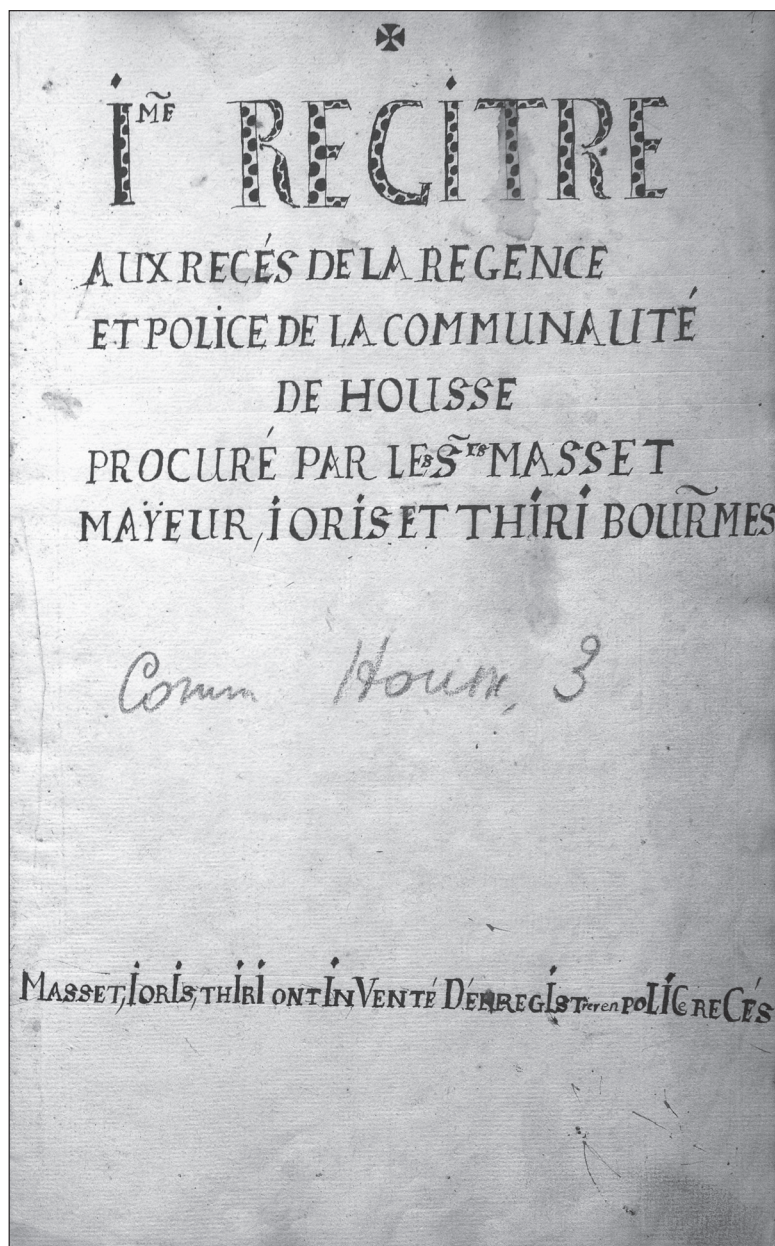 ✠
I^ME RECITRE
AUX RECÉS DE LA REGENCE
ET POLICE DE LA COMMUNAUTÉ
DE HOUSSE
PROCURÉ PAR LES S^rs MASSET
MAŸEUR, IORIS ET THIRI BOURMES
Comm Housse, 3
MASSET, IORIS, THIRI ONT INVENTÉ D'ENREGISTrer en POLICe RECÉS